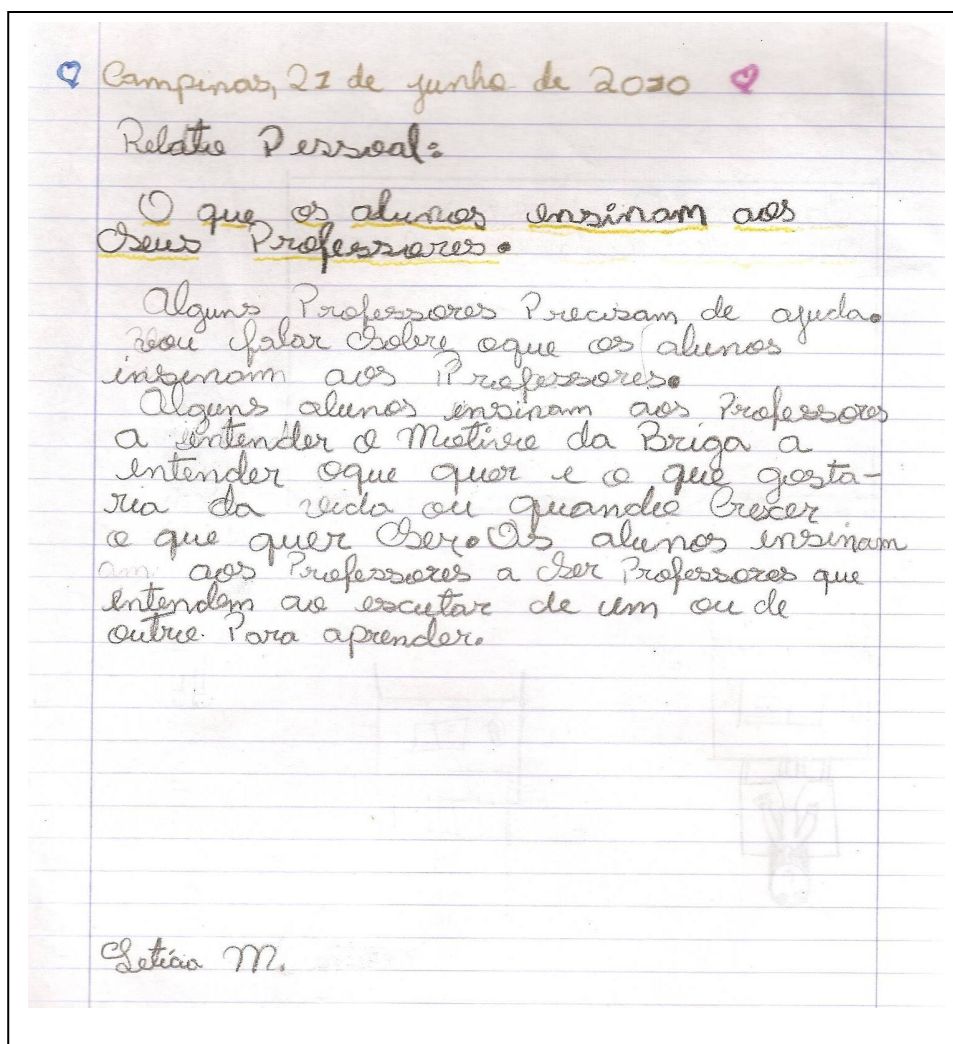 Campinas, 21 de junho de 2010
Relato Pessoal:
O que os alunos ensinam aos
Seus Professores.
Alguns Professores Precisam de ajuda.
vou falar Sobre oque os alunos
insinam aos Professores.
Alguns alunos ensinam aos Professores
a entender o Motivo da Briga a
entender oque quer e o que gosta-
ria da vida ou quando Crescer
o que quer Ser. Os alunos ensinam
am aos Professores a Ser Professores que
entendem ao escutar de um ou de
outro. Para aprender.
Letícia M.